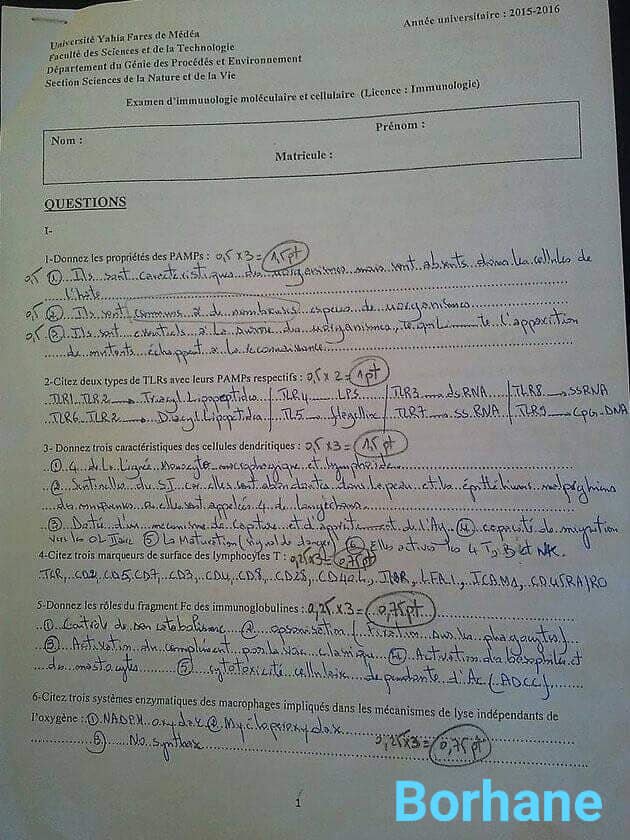 Université Yahia Fares de Médéa
Année universitaire : 2015-2016
Faculté des Sciences et de la Technologie
Département du Génie des Procédés et Environnement
Section Sciences de la Nature et de la Vie
Examen d'immunologie moléculaire et cellulaire (Licence : Immunologie)
Nom :
Prénom :
Matricule :
QUESTIONS
I-
1-Donnez les propriétés des PAMPs : 0,5 x 3 = 1,5pt
0,5 ① Ils sont caractéristiques des µorganismes mais sont absents dans les cellules de
l'hôte
0,5 ② Ils sont communs à de nombreuses espèces de µorganismes
0,5 ③ Ils sont essentiels à la survie des µorganismes, l'apparition
de mutants échappant à la reconnaissance
2-Citez deux types de TLRs avec leurs PAMPs respectifs : 0,5 x 2 = 1pt
TLR1, TLR2 → Triacyl Lipopeptides / TLR4 → LPS / TLR3 → dsRNA / TLR8 → ssRNA
TLR6, TLR2 → Diacyl Lipopeptides / TL5 → flagelline / TLR7 → ss.RNA / TLR9 → CpG-DNA
3- Donnez trois caractéristiques des cellules dendritiques : 0,5 x 3 = 1,5pt
① de la lignée monocyto-macrophagique et lymphoïde
② Sentinelles du SI car elles sont abondantes dans la peau et les épithéliums malpighiens
des muqueuses elles sont appelées de Langerhans
③ Dotée d'un mécanisme de capture et d'apprêtement de l'Ag. ④ capacité de migration
vers les ⑤ La maturation (signal de danger) ⑥ Elles activent les T, B et NK.
4-Citez trois marqueurs de surface des lymphocytes T : 0,25 x 3 = 0,75pt
TCR, CD2, CD5, CD7, CD3, CD4, CD8, CD28, CD40L, LFA.1, ICAM1, CD45RA/RO
5-Donnez les rôles du fragment Fc des immunoglobulines : 0,25 x 3 = 0,75pt
① Contrôle de son catabolisme ② opsonisation (Fixation sur les phagocytes)
③ Activation du complément par la voie classique ④ Activation des basophiles et
des mastocytes ⑤ cytotoxicité cellulaire dépendante d'Ac (ADCC)
6-Citez trois systèmes enzymatiques des macrophages impliqués dans les mécanismes de lyse indépendants de
l'oxygène : ① NADPH oxydase ② Myeloperoxydase
③ No synthase 0,25 x 3 = 0,75pt
1
Borhane